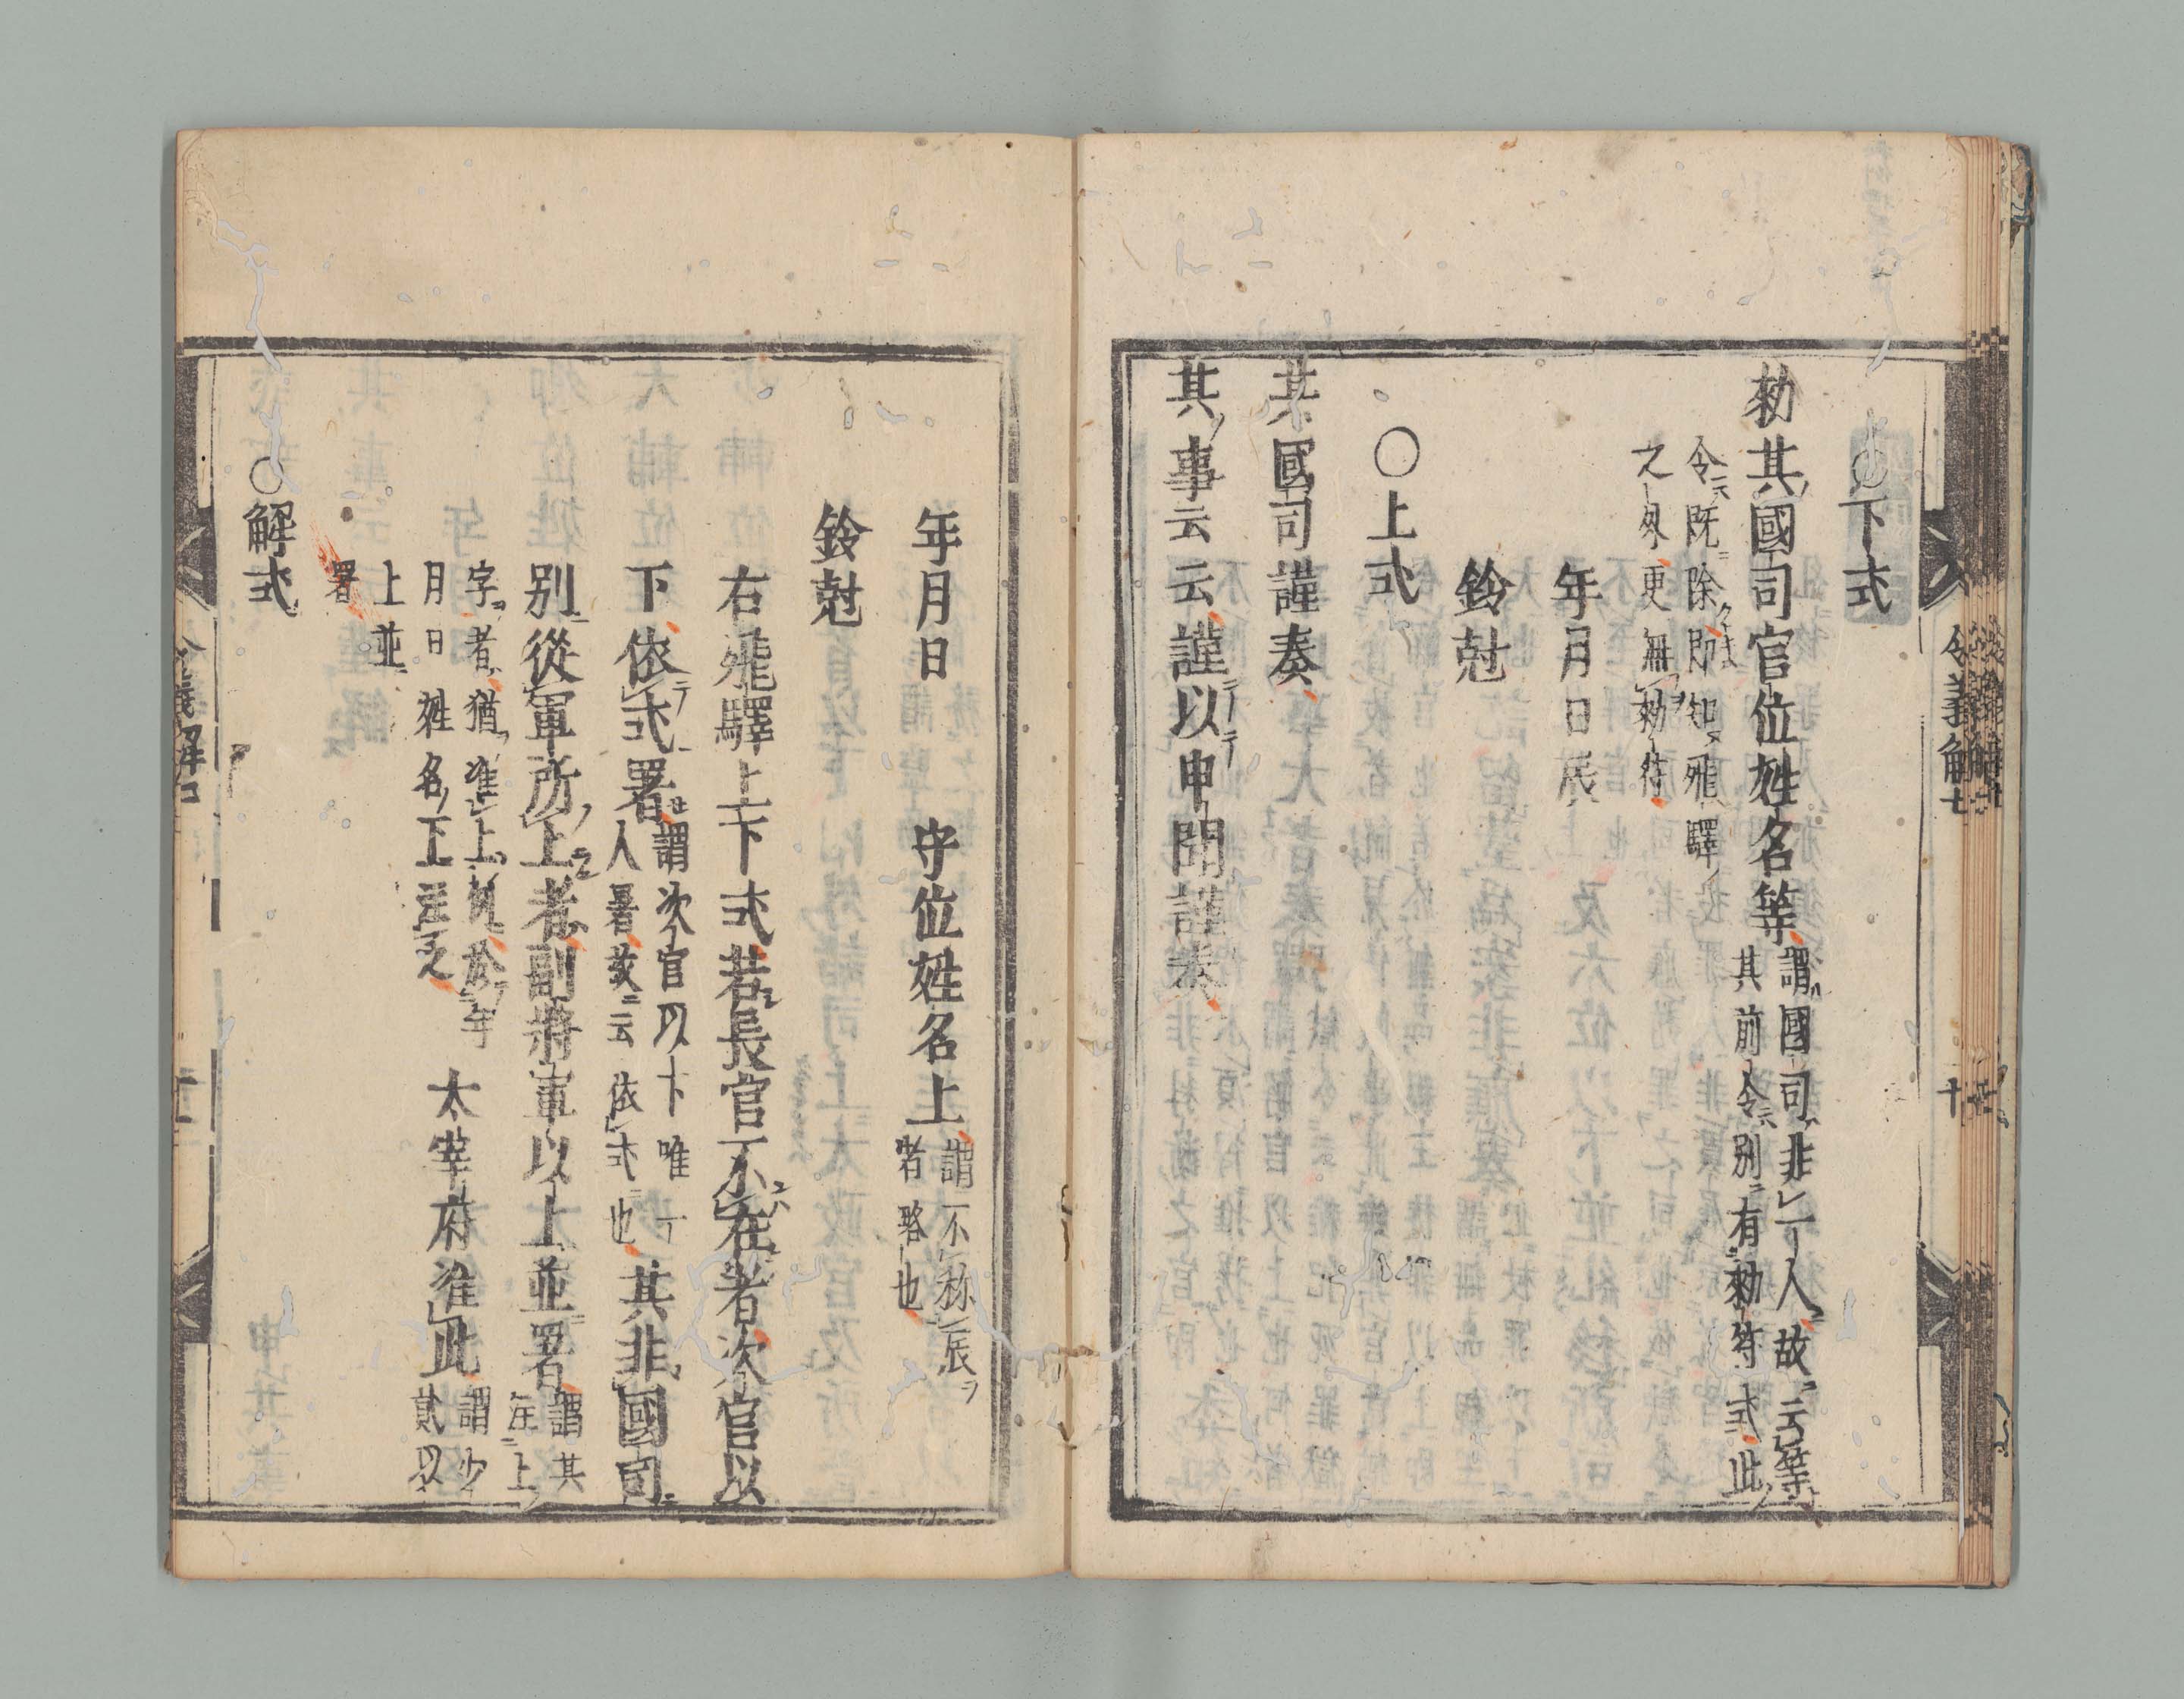 〇下式
勑其國司官位姓名等謂國司非一人故云等
其前令別有勑符式此
令既除即知飛驛
之外更無勑符
年月日辰
鈴尅
〇上式
其國司謹奏
其事云云謹以申聞謹奏
令義解七
十
年月日 守位姓名上謂不称辰
者略也
鈴尅
右飛驛上下式若長官不在者次官以
下依式署謂次官以下唯一
人署故云依式也其非國司
別從軍所上者副將軍以上並署謂其
年上
字者猶准上例於年
月日姓名下注之太宰府准此謂少
貳以
上並
署
〇解式